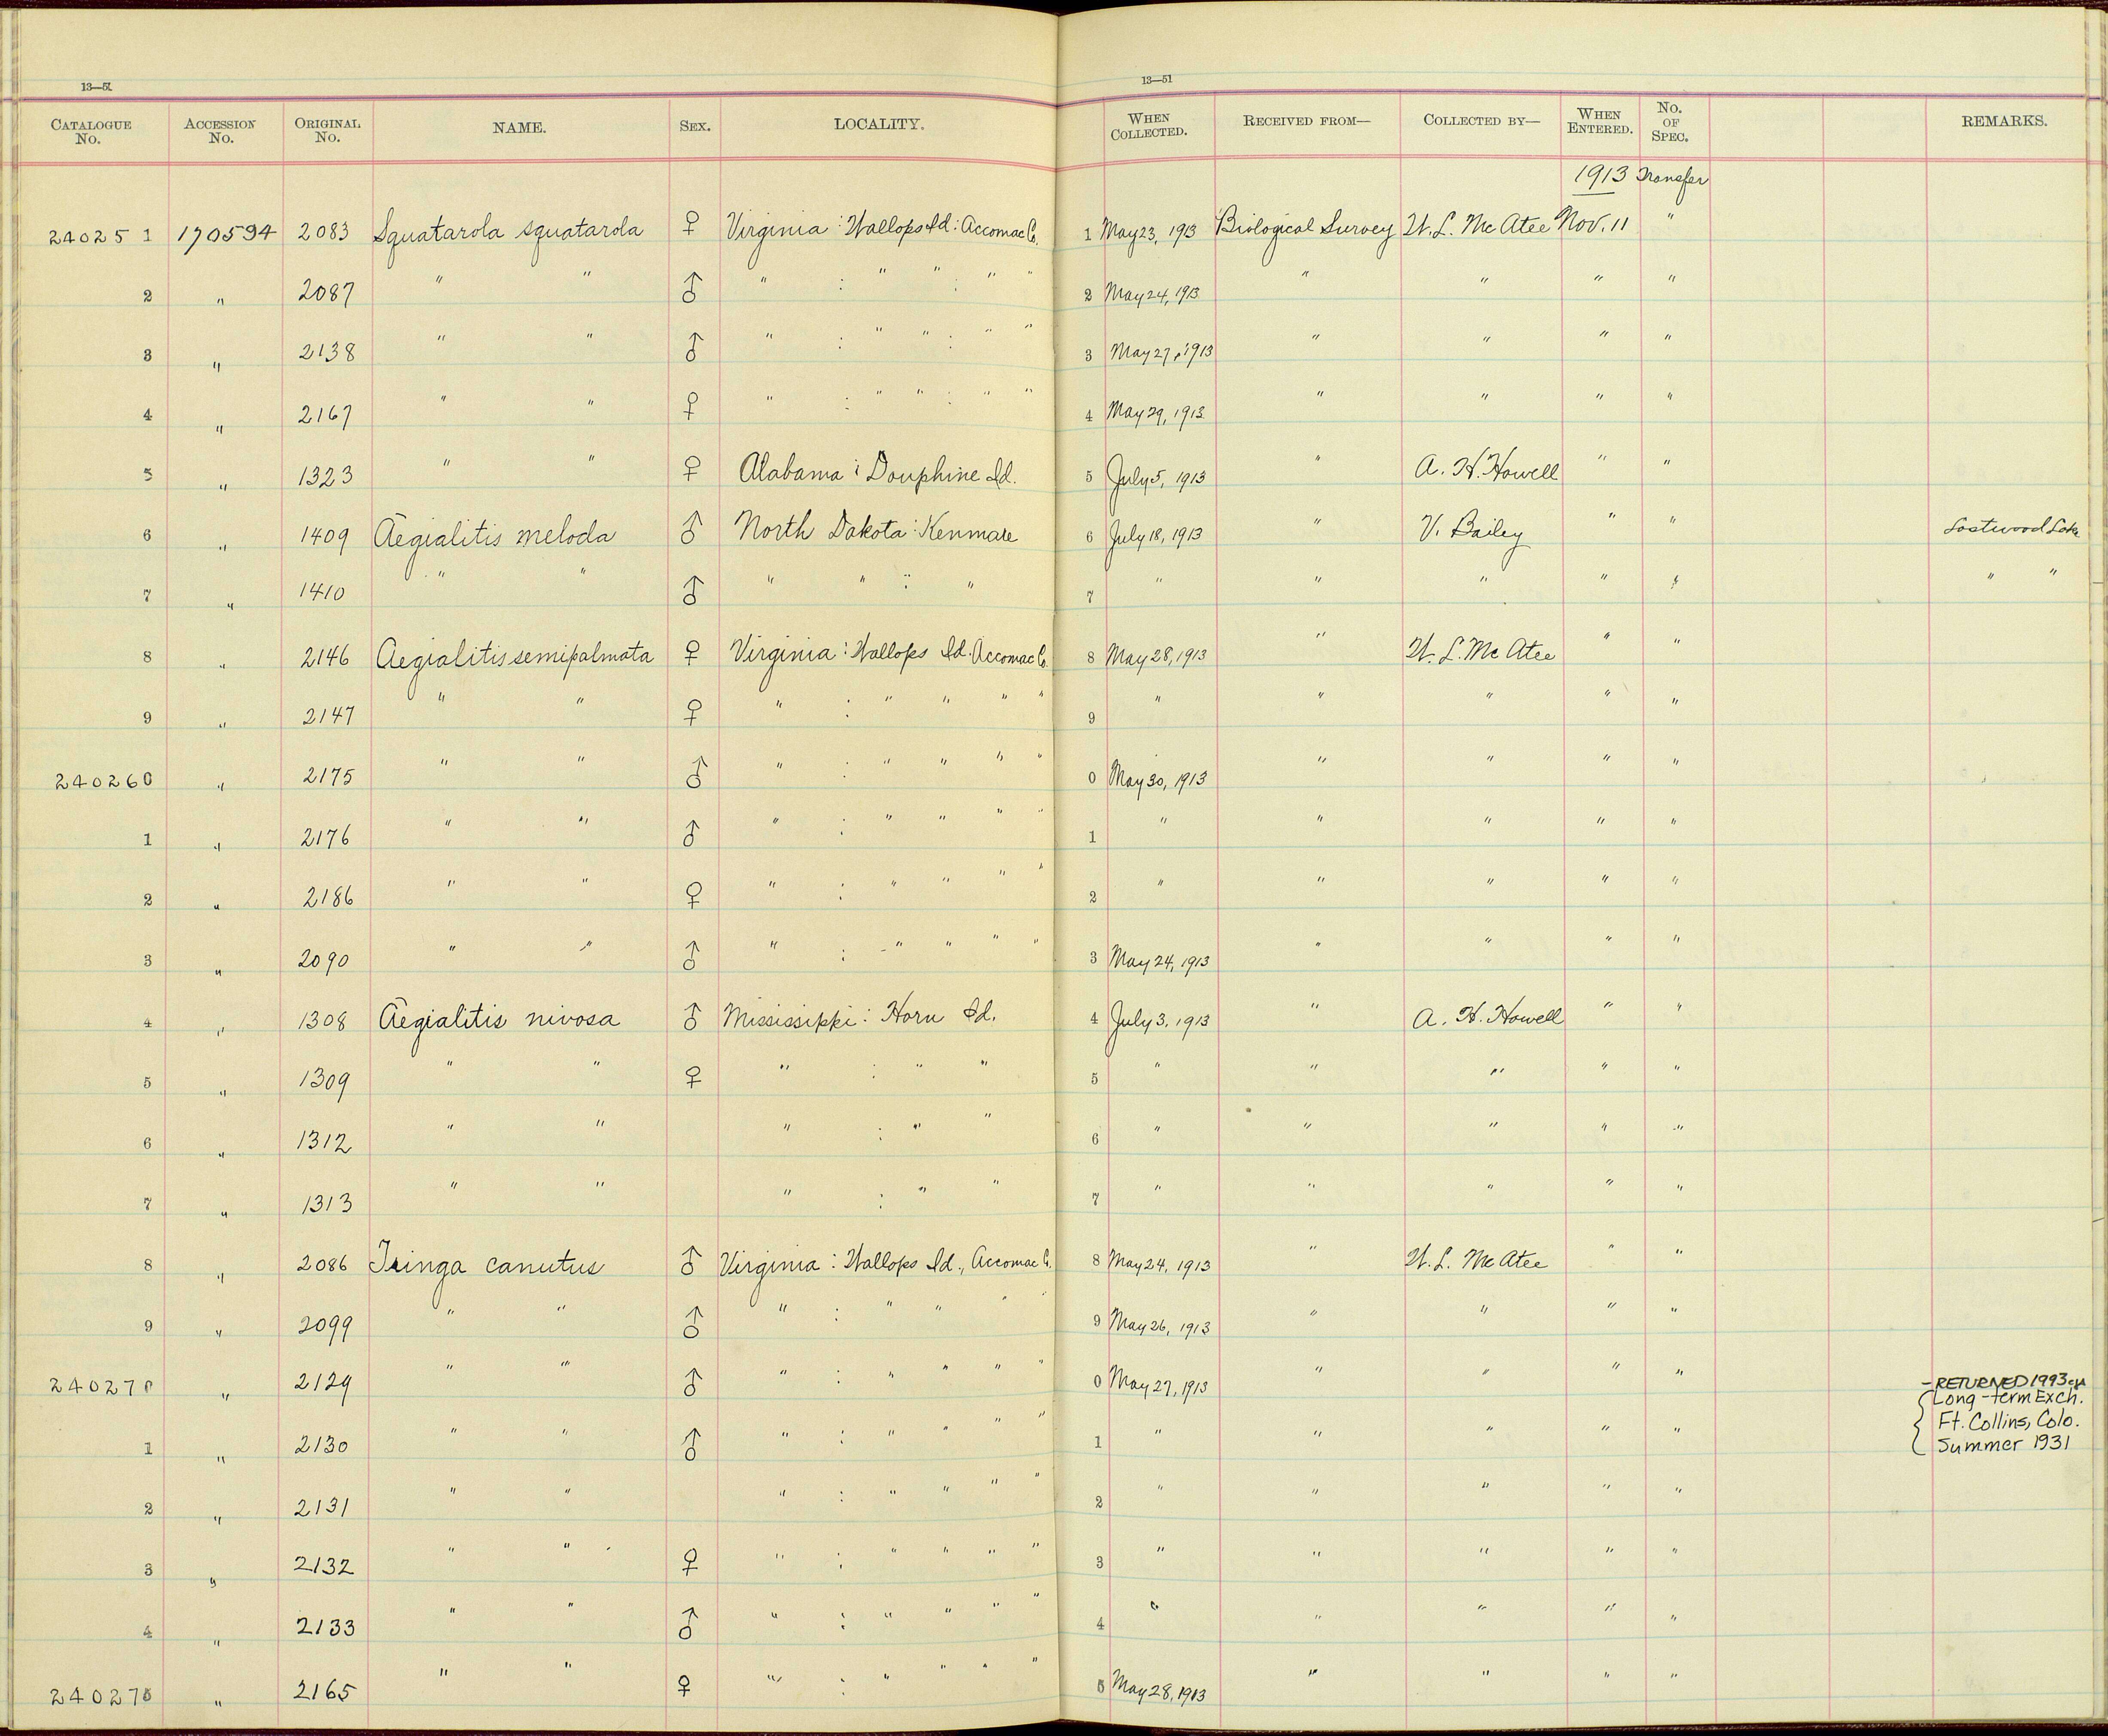 13—51 13—51
CATALOGUE No. ACCESSION No. ORIGINAL No. NAME. SEX. LOCALITY. WHEN COLLECTED. RECEIVED FROM— COLLECTED BY— WHEN ENTERED. No. OF SPEC. REMARKS.
1913 Transfer
240251 170594 2083 Squatarola squatarola ♀ Virginia : Wallops Id : Accomac Co. 1 May 23, 1913 Biological Survey W. L. McAtee Nov. 11 "
2 " 2087 " " ♂ " : " " : " " 2 May 24, 1913 " " " "
3 " 2138 " " ♂ " : " " : " " 3 May 27, 1913 " " " "
4 " 2167 " " ♀ " : " " : " " 4 May 29, 1913 " " " "
5 " 1323 " " ♀ Alabama : Dauphine Id. 5 July 5, 1913 " A. H. Howell " "
6 " 1409 Aegialitis meloda ♂ North Dakota : Kenmare 6 July 18, 1913 " V. Bailey " " Lostwood Lake
7 " 1410 " " ♂ " " : " 7 " " " " " " "
8 " 2146 Aegialitis semipalmata ♀ Virginia : Wallops Id. Accomac Co. 8 May 28, 1913 " W. L. McAtee " "
9 " 2147 " " ♀ " : " " " " 9 " " " " "
240260 " 2175 " " ♂ " : " " " " 0 May 30, 1913 " " " "
1 " 2176 " " ♂ " : " " " " 1 " " " " "
2 " 2186 " " ♀ " : " " " " 2 " " " " "
3 " 2090 " " ♂ " : " " " " 3 May 24, 1913 " " " "
4 " 1308 Aegialitis nivosa ♂ Mississippi : Horn Id. 4 July 3, 1913 " A. H. Howell " "
5 " 1309 " " ♀ " : " " 5 " " " " "
6 " 1312 " " " : " " 6 " " " " "
7 " 1313 " " " : " " 7 " " " " "
8 " 2086 Tringa canutus ♂ Virginia : Wallops Id., Accomac Co. 8 May 24, 1913 " W. L. McAtee " "
9 " 2099 " " ♂ " : " " " " 9 May 26, 1913 " " " "
240270 " 2129 " " ♂ " : " " " " 0 May 27, 1913 " " " " – RETURNED 1993
Long-term Exch.
Ft. Collins, Colo.
1 " 2130 " " ♂ " : " " " " 1 " " " " " Summer 1931
2 " 2131 " " " : " " " " 2 " " " " "
3 " 2132 " " ♀ " : " " " " 3 " " " " "
4 " 2133 " " ♂ " : " " " " 4 " " " " "
240275 " 2165 " " ♀ " : " " " " 5 May 28, 1913 " " " "